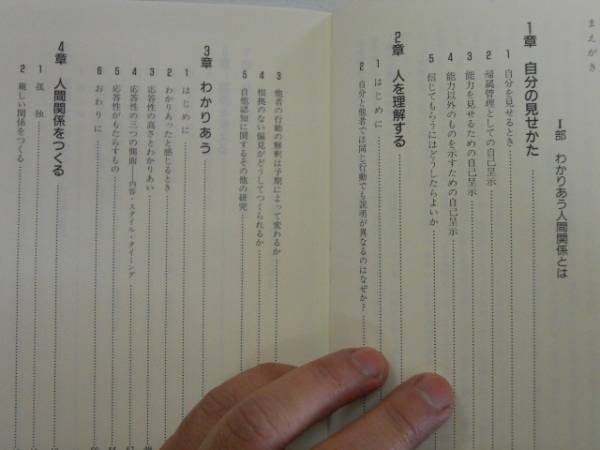 まえがき
I部 わかりあう人間関係とは
1章 自分の見せかた
1 自分を見せるとき
2 帰属管理としての自己呈示
3 能力を見せるための自己呈示
4 能力以外のものを示すための自己呈示
5 信じてもらうにはどうしたらよいか
2章 人を理解する
1 はじめに
2 自分と他者では同じ行動でも説明が異なるのはなぜか?
3 他者の行動の解釈は予期によって変わるか
4 根拠のない偏見がどうしてつくられるか
5 自他認知に関するその他の研究
3章 わかりあう
1 はじめに
2 わかりあったと感じるとき
3 応答性の高さとわかりあい
4 応答性の三つの側面――内容・スタイル・タイミング
5 応答性がもたらすもの
6 おわりに
4章 人間関係をつくる
1 孤独
2 親しい関係をつくる